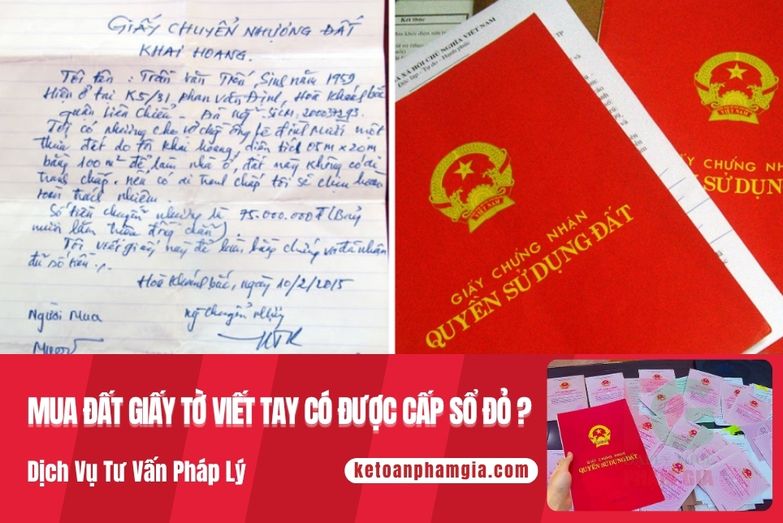 GIẤY CHUYỂN NHƯỢNG ĐẤT
KHAI HOANG.
Tôi tên: Trần Văn Tiến, Sinh năm 1959
Hiện ở tại K5/31 Phan Văn Định, Hoà Khánh Bắc
quận Liên Chiểu. Đà Nẵng
Tôi có nhượng cho vợ chồng ông bà Đinh Mười một
thửa đất do tôi khai hoang, diện tích 05m x 20m
bằng 100m² để làm nhà ở, đất này không có di
tranh chấp. nếu có di tranh chấp tôi sẽ chịu hoàn
toàn trách nhiệm.
Số tiền chuyển nhượng là 75.000.000đ (Bảy
mười lăm triệu đồng chẵn).
Tôi viết giấy này để làm bằng chứng và đã nhận
đủ số tiền.
Hoà Khánh Bắc, ngày 10/2/2015
Người Mua
VIỆT NAM
GIẤY CHỨNG NHẬN
QUYỀN SỬ DỤNG ĐẤT
GIẤY CHỨNG NHẬN
SỬ DỤNG
MUA ĐẤT GIẤY TỜ VIẾT TAY CÓ ĐƯỢC CẤP SỔ ĐỎ ?
Dịch Vụ Tư Vấn Pháp Lý
ketoanphamgia.com
GIẤY CHỨNG NHẬN
QUYỀN SỬ DỤNG ĐẤT